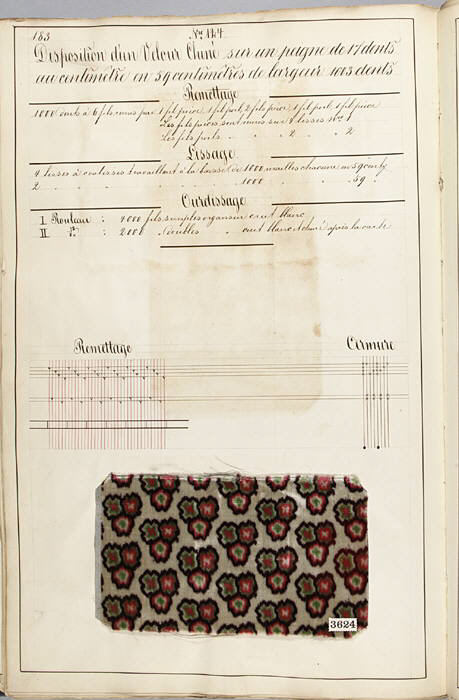 183
No. 127
Disposition d'un Velour Chiné sur un peigne de 17 dents
au centimètre en 59 centimètres de largeur 1003 dents
Remettage
1000 dents à 6 fils, remis par 1 fil pièce, 1 fil poil, 2 fils pièce, 1 fil poil, 1 fil pièce
Les fils pièces sont remis sur 4 lisses
Les fils poils 2 2
Lissage
4 lisses à coulisses travaillant à la hausse de 1000 mailles chacune en 59 cent
2 1000 59
Ourdissage
I Rouleau : 4000 fils simples organsin cuit blanc
II do : 2000 doubles cuit blanc chiné après la
Remettage
Armure
3624